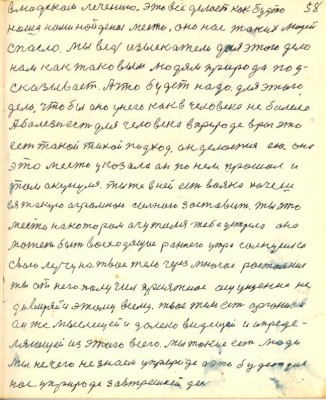 58
людском лечению. Это всё делает как будто
наша нами найдена место, оно нас таких людей
спасло, мы ведь изыскатели для этого дело
нам как таковым людям природа под-
сказывает. А что будет надо для этого
дела, чтобы оно у него как в человека не болело
А болезнь есть для человека в природе враг это
есть такой тихой подход, он делается ею, она
это место указала он по нем прошол и
там окунулся. ты же в ней есть
в такую огромною силного заставит, ты это
место на котором очутился тебе устроила она
может быт восходящие раннего утра солнушка
свои лучи на твое тело через многое растояние
ты от него получил приятное ощущение не
доверяй этому всему, твое тело ест
он же мыслящей и далеко видящей и опреде-
ляющей из этого всего. мы такие ест люди
мы нечего не знаем у природе а что будет для
нас у природе завтрешней ден